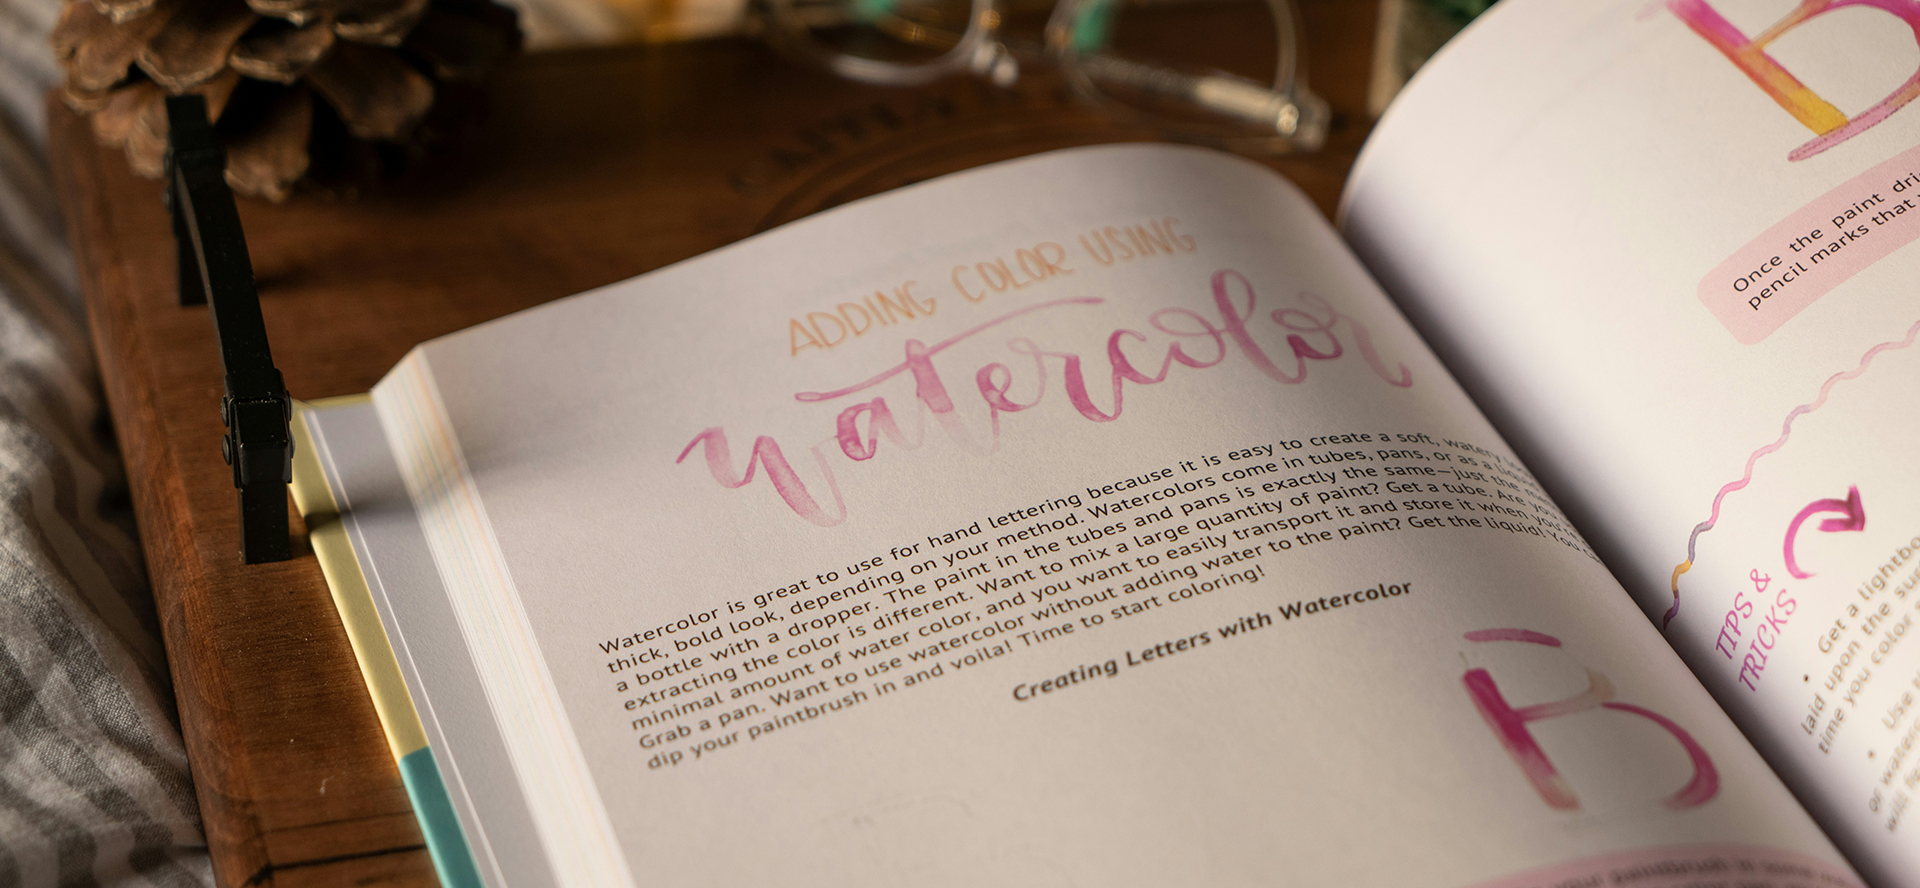 ADDING COLOR USING
watercolor
Watercolor is great to use for hand lettering because it is easy to create a soft, watery
thick, bold look, depending on your method. Watercolors come in tubes, pans, or as a liquid
a bottle with a dropper. The paint in the tubes and pans is exactly the same—just the
extracting the color is different. Want to mix a large quantity of paint? Get a tube. Are you
minimal amount of water color, and you want to easily transport it and store it when you're
Grab a pan. Want to use watercolor without adding water to the paint? Get the liquid! You
dip your paintbrush in and voila! Time to start coloring!
Creating Letters with Watercolor
B
B
Once the paint
pencil marks that
TIPS &
TRICKS
• Get a lightbo
laid upon the
time you color
• Use